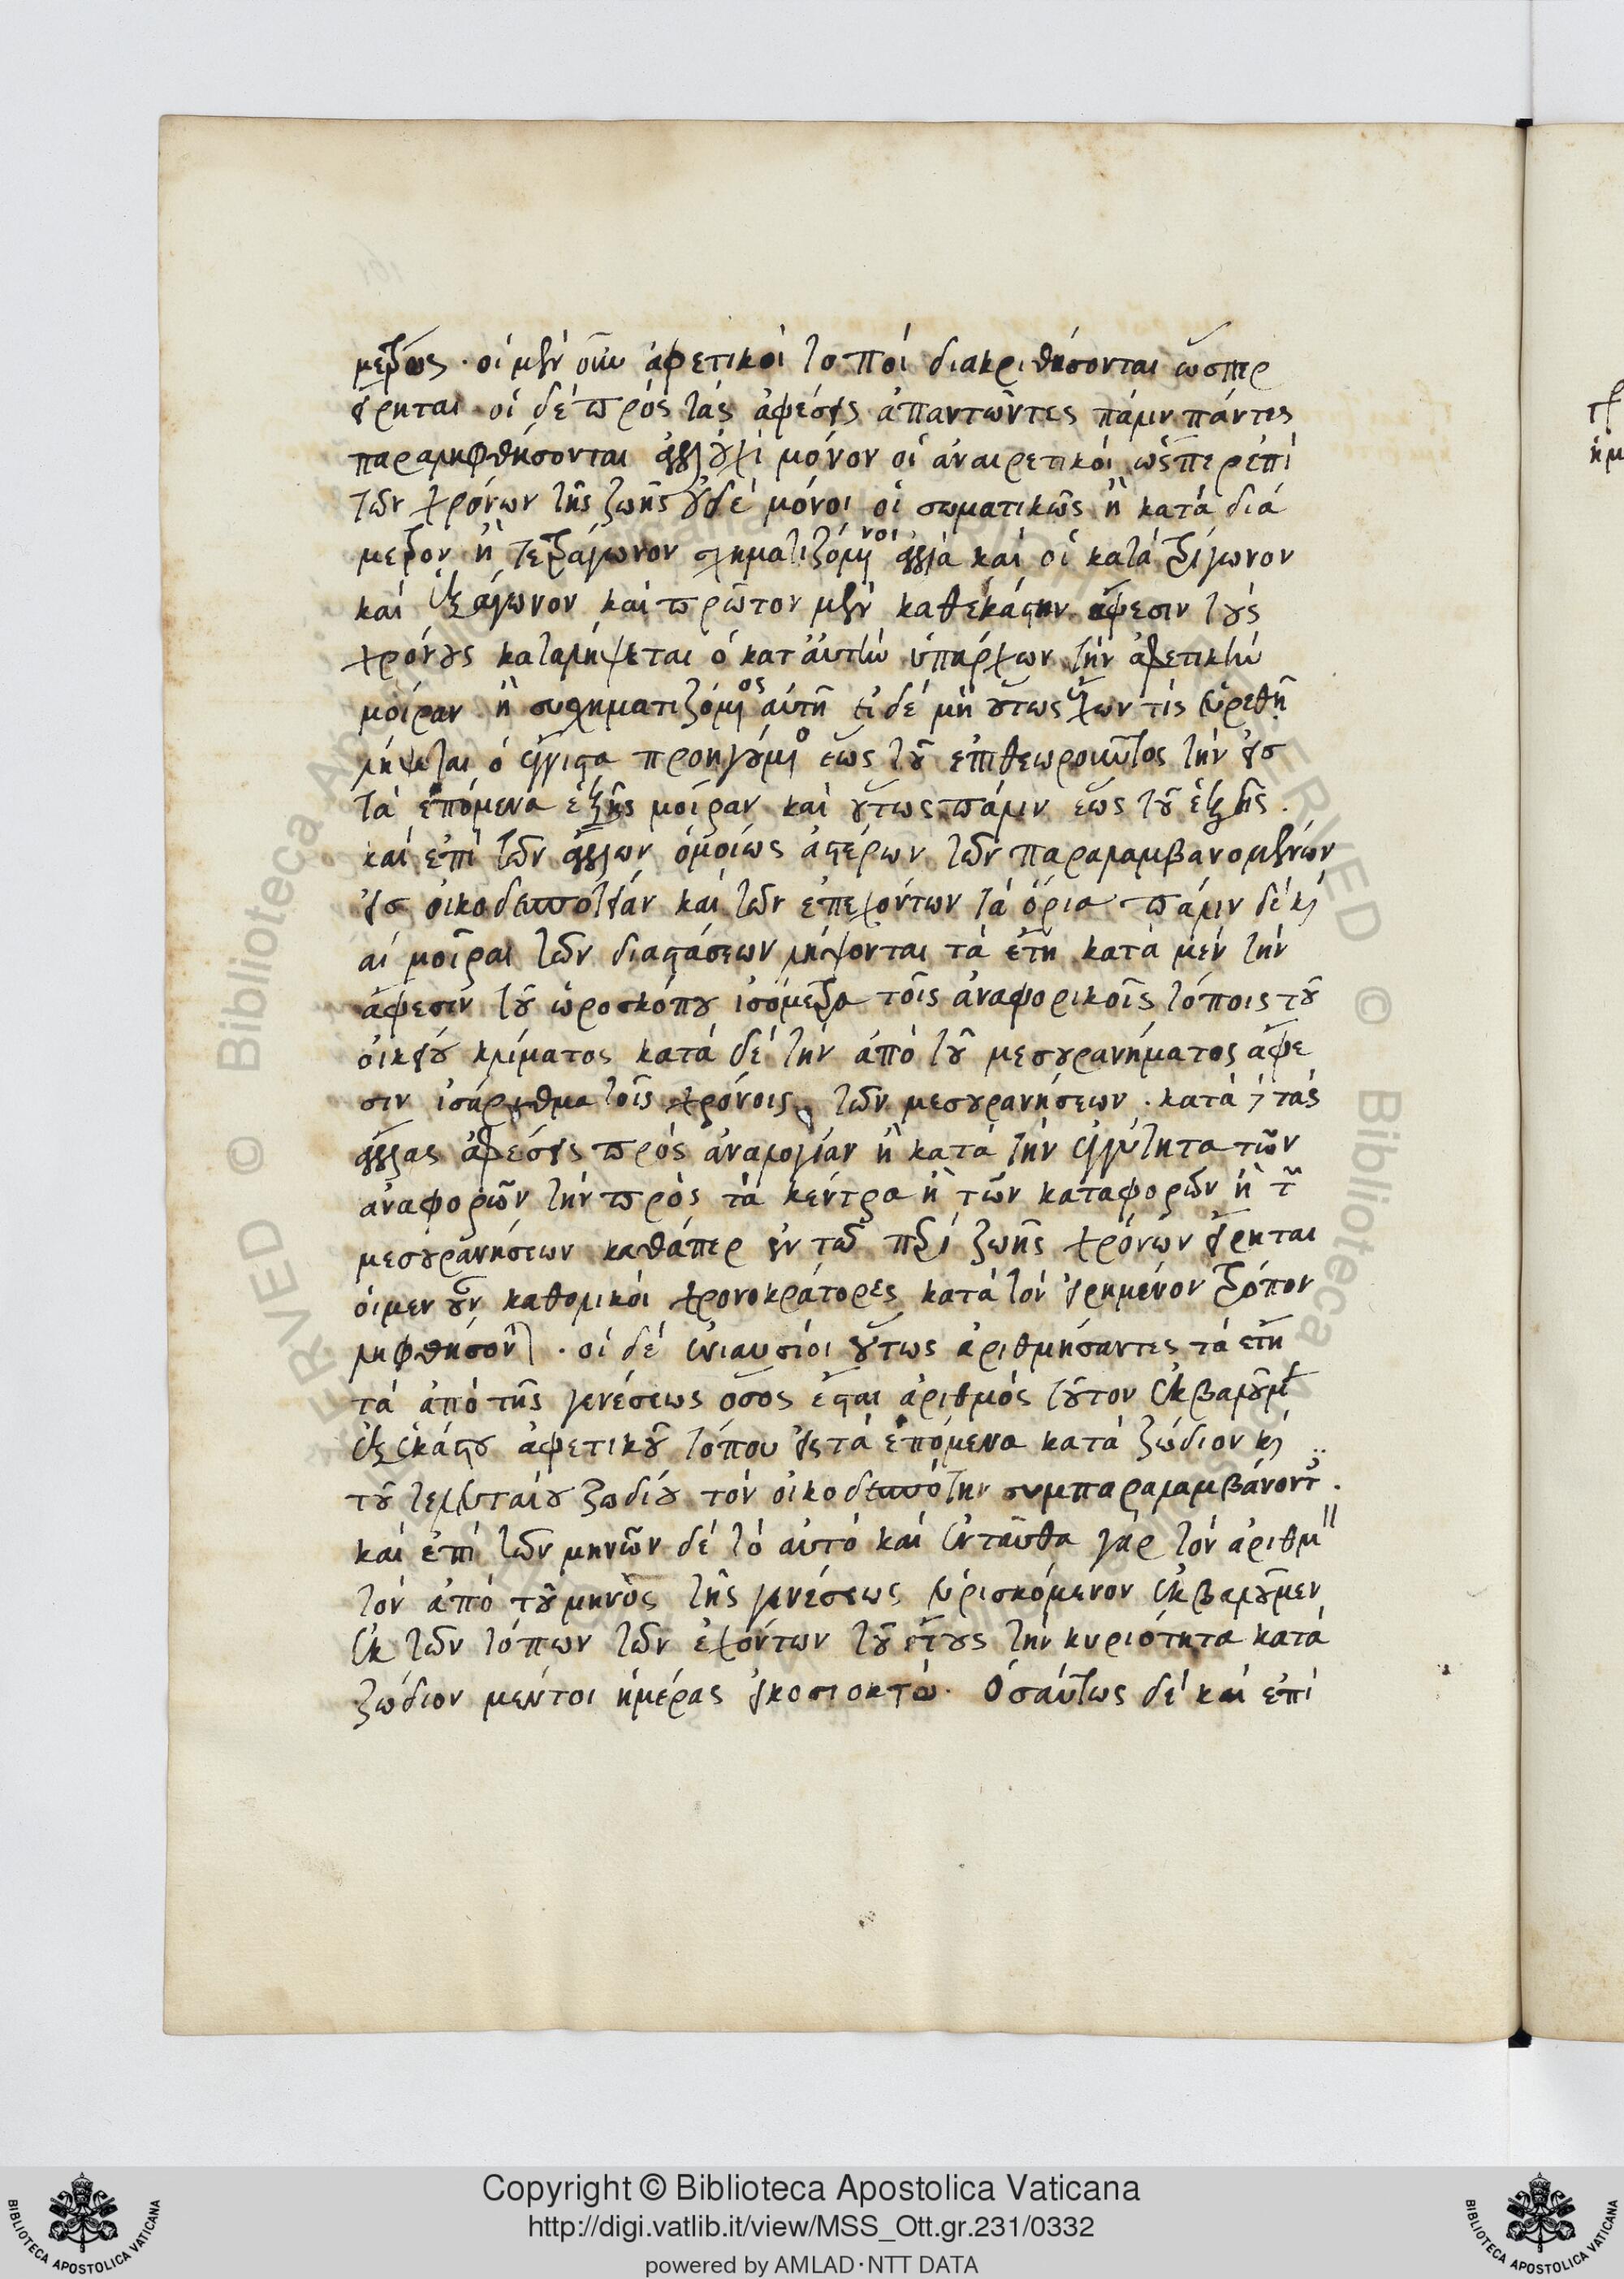 μέτρως. οἱ μὲν οὖν ἀφετικοὶ τοποὶ διακριθήσονται ὥσπερ
εἴρηται. οἱ δὲ πρὸς τὰς ἀφέσεις ἀπαντῶντες πάλιν πάντες
παραληφθήσονται ἀλλ' οὐχὶ μόνον οἱ ἀναιρετικοὶ ὥσπερ ἐπὶ
τῶν χρόνων τῆς ζωῆς οὐδὲ μόνοι οἱ σωματικῶς ἢ κατὰ διά
μετρον ἢ τετράγωνον σχηματιζόμενοι ἀλλὰ καὶ οἱ κατὰ τρίγωνον
καὶ ἑξάγωνον καὶ πρῶτον μὲν καθ' ἑκάστην ἄφεσιν τοὺς
χρόνους καταλήψεται ὁ κατ' αὐτὴν ὑπάρχων τὴν ἀφετικὴν
μοίραν. ἢ συσχηματιζόμενος αὐτῇ εἰ δὲ μὴ οὕτως ἔχων τις εὑρεθῇ
λήψεται ὁ ἔγγιστα προηγούμενος ἕως τοῦ ἐπιθεωροῦντος τὴν εἰς
τὰ ἑπόμενα ἑξῆς μοίραν καὶ οὕτως πάλιν ἕως τοῦ ἑξῆς.
καὶ ἐπὶ τῶν ἄλλων ὁμοίως ἀστέρων τῶν παραλαμβανομένων
εἰς οἰκοδεσποτείαν καὶ τῶν ἐπεχόντων τὰ ὅρια πάλιν δὲ καὶ
αἱ μοῖραι τῶν διαστάσεων λήψονται τὰ ἔτη κατὰ μὲν τὴν
ἄφεσιν τοῦ ὡροσκόπου ἰσόμετρα τοῖς ἀναφορικοῖς τόποις τοῦ
οἰκείου κλίματος κατὰ δὲ τὴν ἀπὸ τοῦ μεσουρανήματος ἄφε
σιν ἰσάριθμα τοῖς χρόνοις τῶν μεσουρανήσεων. κατὰ δὲ τὰς
ἄλλας ἀφέσεις πρὸς ἀναλογίαν ἢ κατὰ τὴν ἐγγύτητα τῶν
ἀναφορῶν τὴν πρὸς τὰ κέντρα ἢ τῶν καταφορῶν ἢ τῶν
μεσουρανήσεων καθάπερ ἐν τῶ περὶ ζωῆς χρόνων εἴρηται
οἱ μὲν οὖν καθολικοὶ χρονοκράτορες κατὰ τὸν εἰρημένον τρόπον
ληφθήσονται. οἱ δὲ ἐνιαυσίοι οὕτως ἀριθμήσαντες τὰ ἔτη
τὰ ἀπὸ τῆς γενέσεως ὅσος ἔσται ἀριθμὸς τοῦτον ἐκβαλοῦμεν
ἐξ ἑκάστου ἀφετικοῦ τόπου εἰς τὰ ἑπόμενα κατὰ ζώδιον καὶ
τοῦ τελευταίου ζωδίου τὸν οἰκοδεσπότην συμπαραλαμβάνοντες.
καὶ ἐπὶ τῶν μηνῶν δὲ τὸ αὐτὸ καὶ ἐνταῦθα γὰρ τὸν ἀριθμὸν
τὸν ἀπὸ τοῦ μηνὸς τῆς γενέσεως εὑρισκόμενον ἐκβαλοῦμεν
ἐκ τῶν τόπων τῶν ἐχόντων τοῦ ἔτους τὴν κυριότητα κατὰ
ζώδιον μέντοι ἡμέρας εἰκοσιοκτὼ. Ὁσαύτως δὲ καὶ ἐπὶ
Copyright © Biblioteca Apostolica Vaticana
http://digi.vatlib.it/view/MSS_Ott.gr.231/0332
powered by AMLAD·NTT DATA